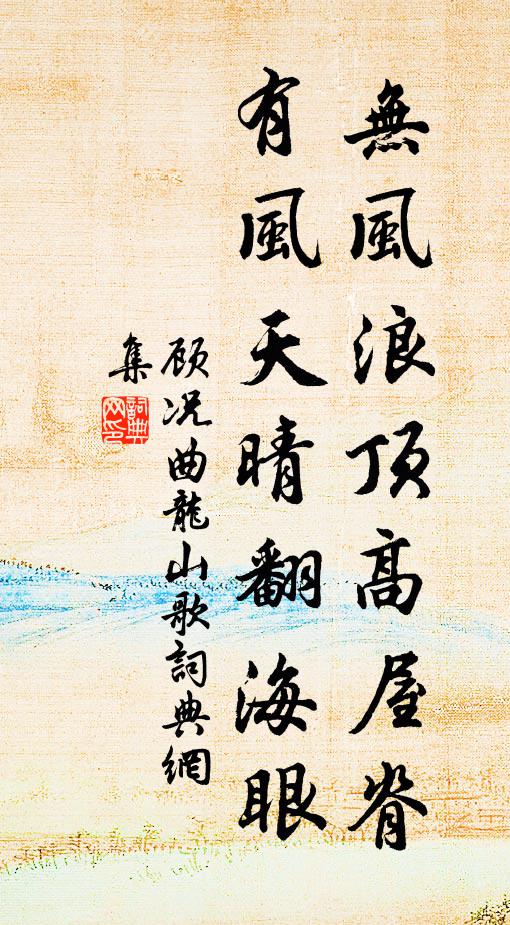 無風浪顶高屋脊
有風天晴翻海眼
顾况曲龍山歌詞典網
集
詞典
网印